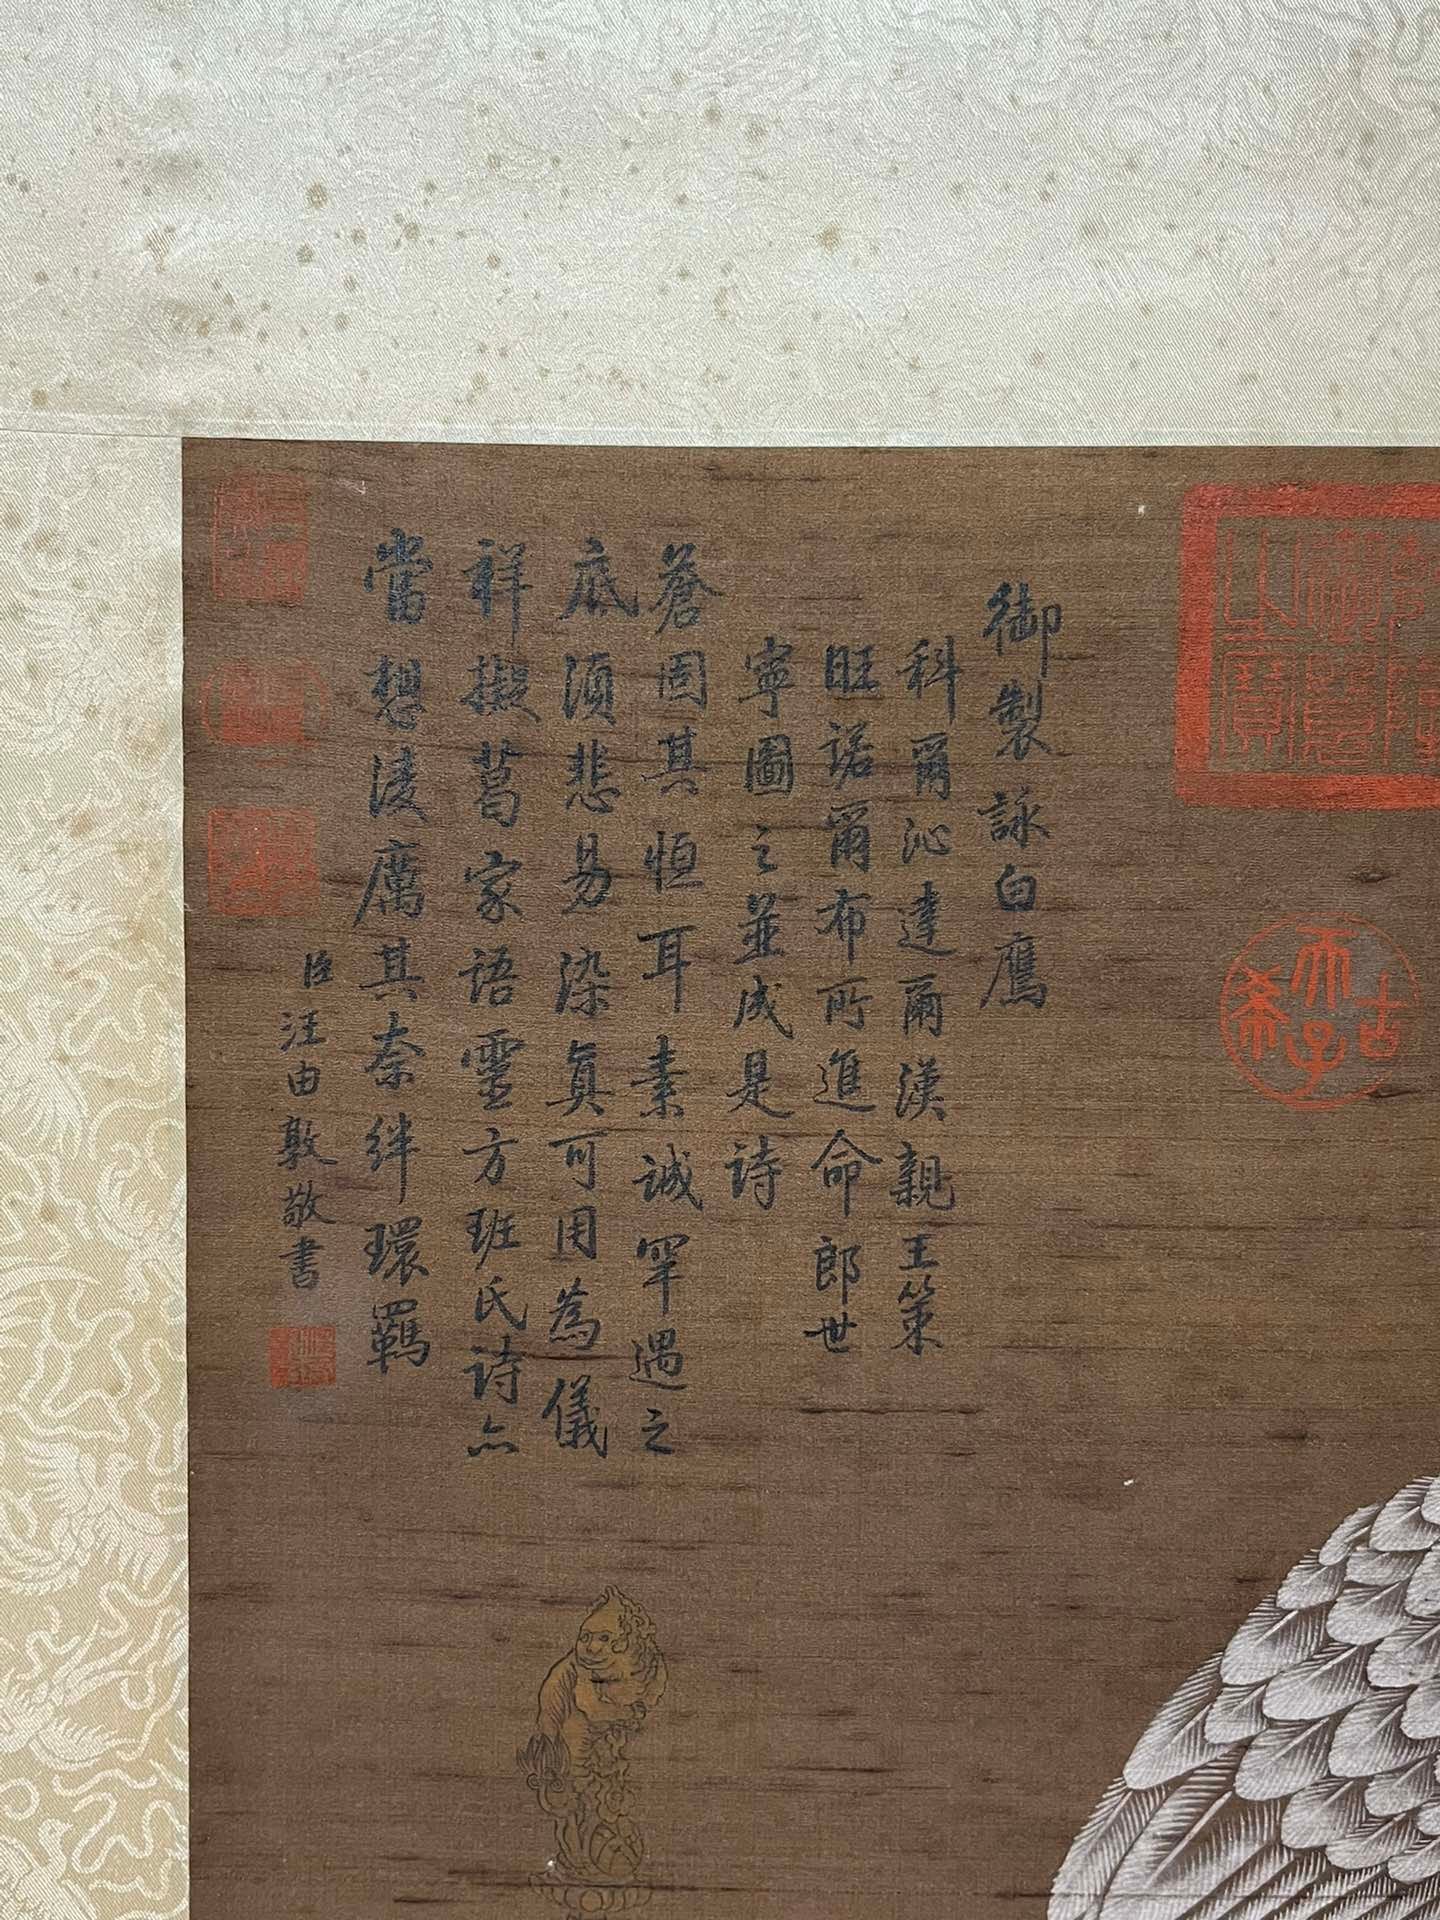 御製詠白鷹
科爾沁達爾漢親王策
旺諾爾布所進命郎世
寧圖之並成是詩
蒼固其恒耳素誠罕遇之
底須悲易染真可用為儀
祥擬葛家語靈方班氏詩亦
當想淩厲其奈絆環羈
臣汪由敦敬書
古
天子
希
之寶